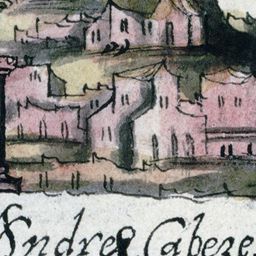 Andres Cabeze